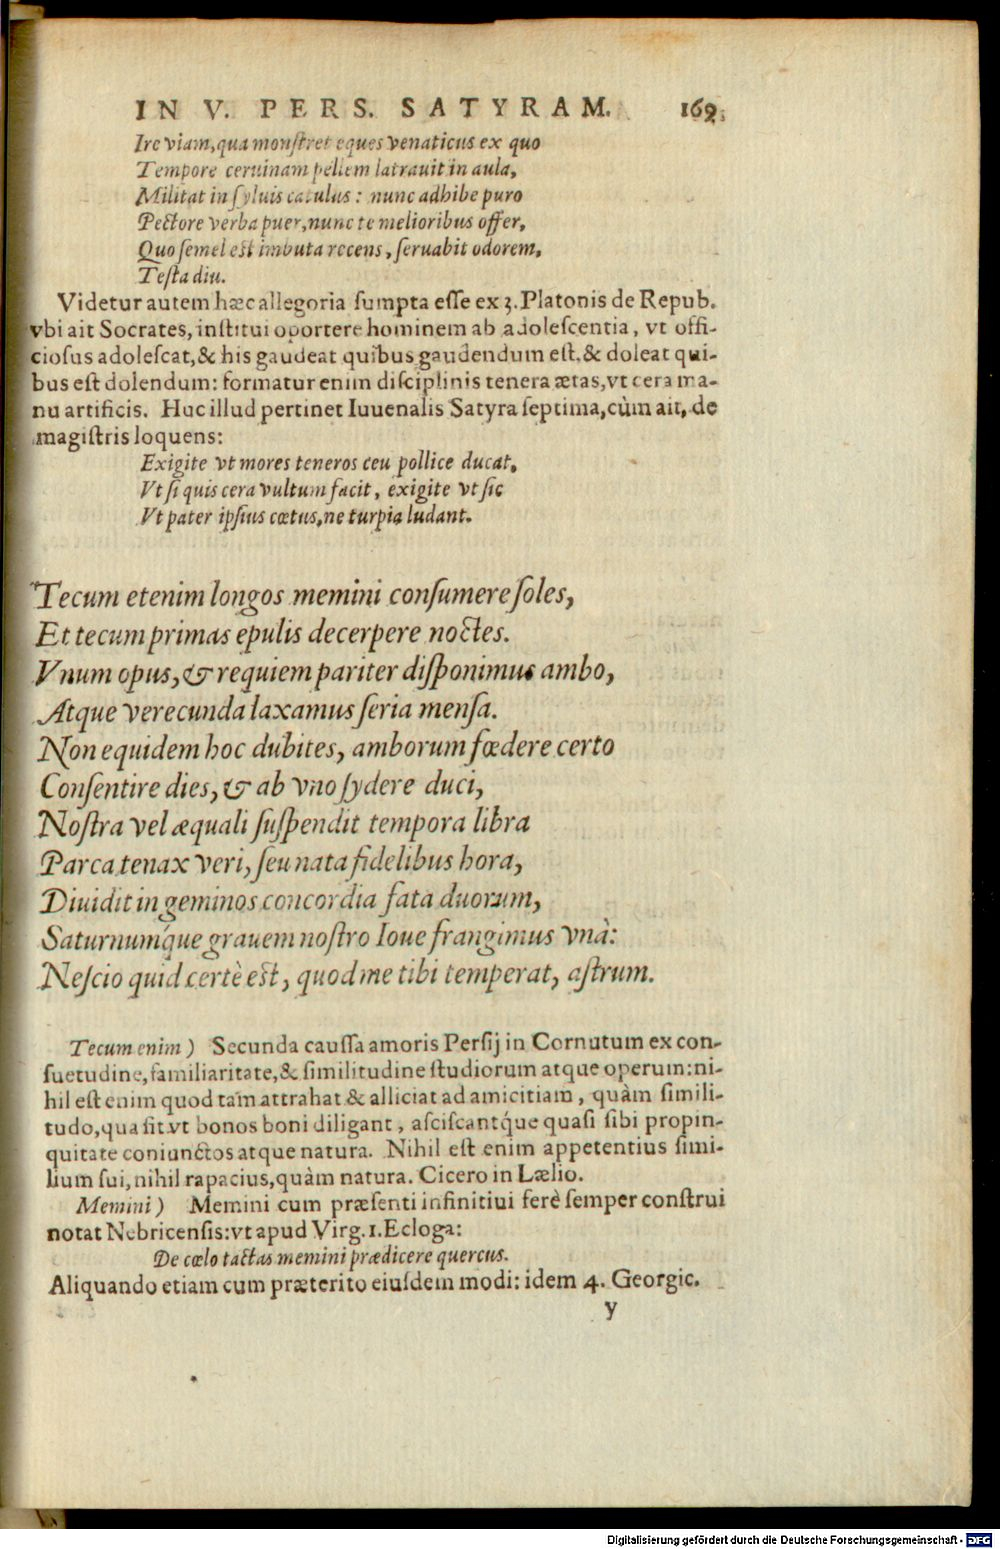 IN V. PERS. SATYRAM. 169.
Ire viam, qua monſtret eques venaticus ex quo
Tempore ceruinam pellem latrauit in aula,
Militat in ſyluis catulus: nunc adhibe puro
Pectore verba puer, nunc te melioribus offer,
Quo ſemel eſt imbuta recens, ſeruabit odorem,
Teſta diu.
Videtur autem hæc allegoria ſumpta eſſe ex 3. Platonis de Repub.
vbi ait Socrates, inſtitui oportere hominem ab adoleſcentia, vt offi-
cioſus adoleſcat, & his gaudeat quibus gaudendum eſt, & doleat qui-
bus eſt dolendum: formatur enim diſciplinis tenera ætas, vt cera ma-
nu artificis. Huc illud pertinet Iuuenalis Satyra ſeptima, cùm ait, de
magiſtris loquens:
Exigite vt mores teneros ceu pollice ducat,
Vt ſi quis cera vultum facit, exigite vt ſic
Vt pater ipſius cœtus, ne turpia ludant.
Tecum etenim longos memini conſumere ſoles,
Et tecum primas epulis decerpere noctes.
Vnum opus, & requiem pariter diſponimus ambo,
Atque verecunda laxamus ſeria menſa.
Non equidem hoc dubites, amborum fœdere certo
Conſentire dies, & ab vno ſydere duci,
Noſtra vel æquali ſuſpendit tempora libra
Parca tenax veri, ſeu nata fidelibus hora,
Diuidit in geminos concordia fata duorum,
Saturnumq́ue grauem noſtro Ioue frangimus vnà:
Neſcio quid certè eſt, quod me tibi temperat, aſtrum.
Tecum enim) Secunda cauſſa amoris Perſij in Cornutum ex con-
ſuetudine, familiaritate, & ſimilitudine ſtudiorum atque operum: ni-
hil eſt enim quod tam attrahat & alliciat ad amicitiam, quàm ſimili-
tudo, qua fit vt bonos boni diligant, aſciſcantq́ue quaſi ſibi propin-
quitate coniunctos atque natura. Nihil eſt enim appetentius ſimi-
lium ſui, nihil rapacius, quàm natura. Cicero in Lælio.
Memini) Memini cum præſenti infinitiui ferè ſemper conſtrui
notat Nebricenſis: vt apud Virg. 1. Ecloga:
De cœlo tactas memini prædicere quercus.
Aliquando etiam cum præterito eiuſdem modi: idem 4. Georgic.
y
Digitalisierung gefördert durch die Deutsche Forschungsgemeinschaft - DFG